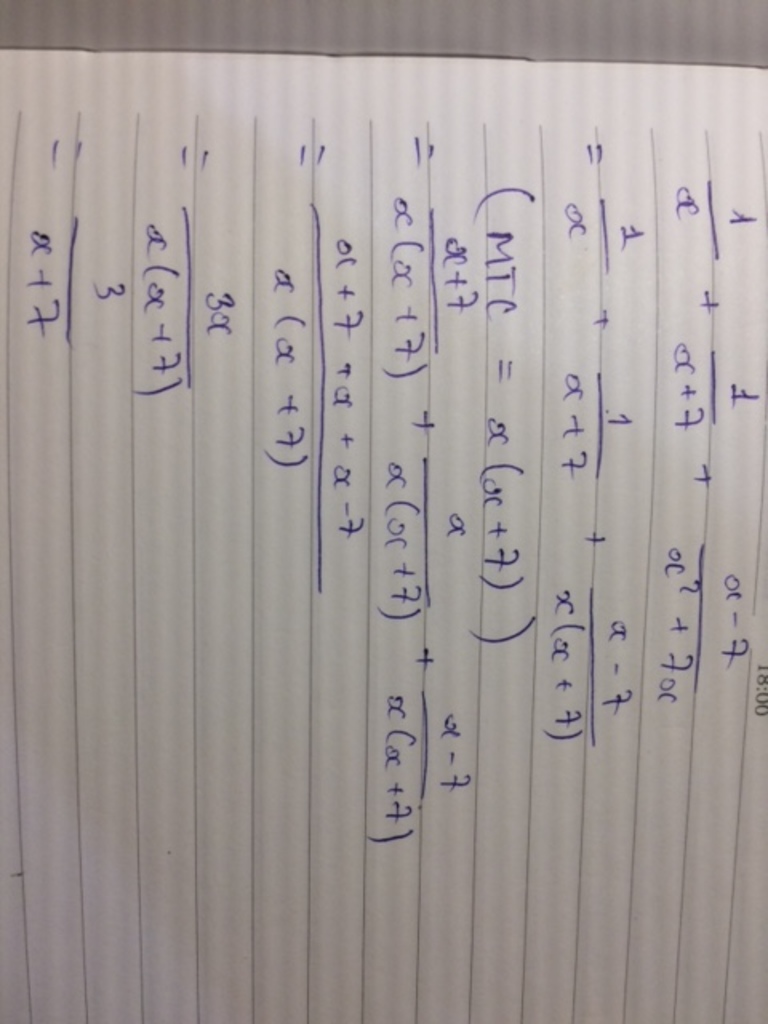 18:00
1/x + 1/(x+7) + (x-7)/(x² + 7x)
= 1/x + 1/(x+7) + (x-7)/(x(x+7))
(MTC = x(x+7))
= (x+7)/(x(x+7)) + x/(x(x+7)) + (x-7)/(x(x+7))
= (x+7+x+x-7)/(x(x+7))
= 3x/(x(x+7))
= 3/(x+7)